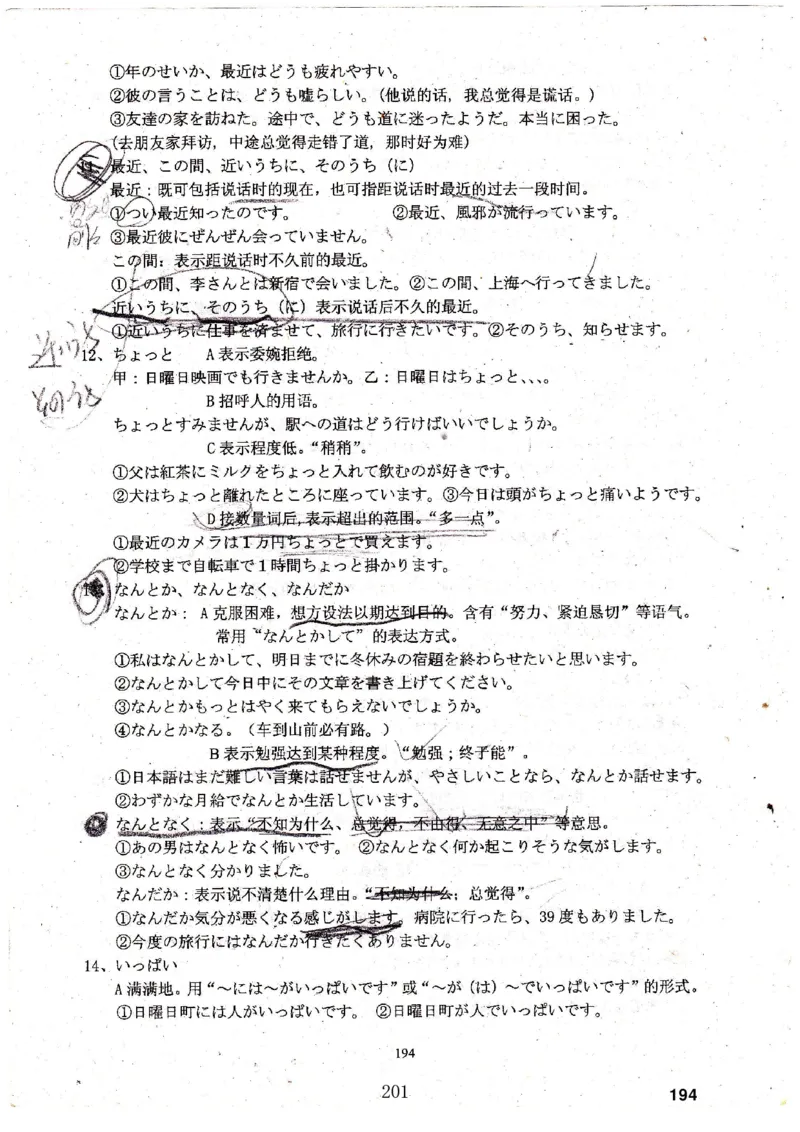 ①年のせいか、最近はどうも疲れやすい。
②彼の言うことは、どうも嘘らしい。(他说的话，我总觉得是谎话。)
③友達の家を訪ねた。途中で、どうも道に迷ったようだ。本当に困った。
(去朋友家拜访，中途总觉得走错了道，那时好为难)
最近、この間、近いうちに、そのうち（に）
最近：既可包括说话时的现在，也可指距说话时最近的过去一段时间。
①つい最近知ったのです。 ②最近、風邪が流行っています。
③最近彼にぜんぜん会っていません。
この間：表示距说话时不久前的最近。
①この間、李さんとは新宿で会いました。②この間、上海へ行ってきました。
近いうちに、そのうち（に）表示说话后不久的最近。
①近いうちに仕事を済ませて、旅行に行きたいです。②そのうち、知らせます。
近いうち
そのうち
12、ちょっと A 表示委婉拒绝。
甲：日曜日映画でも行きませんか。乙：日曜日はちょっと、、、。
B 招呼人的用语。
ちょっとすみませんが、駅への道はどう行けばいいでしょうか。
C 表示程度低。“稍稍”。
①父は紅茶にミルクをちょっと入れて飲むのが好きです。
②犬はちょっと離れたところに座っています。③今日は頭がちょっと痛いようです。
D 接数量词后，表示超出的范围。“多一点”。
①最近のカメラは１万円ちょっとで買えます。
②学校まで自転車で１時間ちょっと掛かります。
なんとか、なんとなく、なんだか
なんとか： A 克服困难，想方设法以期达到目的。含有“努力、紧迫恳切”等语气。
常用“なんとかして”的表达方式。
①私はなんとかして、明日までに冬休みの宿題を終わらせたいと思います。
②なんとかして今日中にその文章を書き上げてください。
③なんとかもっとはやく来てもらえないでしょうか。
④なんとかなる。（车到山前必有路。）
B 表示勉强达到某种程度。“勉强；终于能”。
①日本語はまだ難しい言葉は話せませんが、やさしいことなら、なんとか話せます。
②わずかな月給でなんとか生活しています。
なんとなく：表示“不知为什么、总觉得，不由得、无意之中”等意思。
①あの男はなんとなく怖いです。 ②なんとなく何か起こりそうな気がします。
③なんとなく分かりました。
なんだか：表示说不清楚什么理由。“不知为什么；总觉得”。
①なんだか気分が悪くなる感じがします。病院に行ったら、39 度もありました。
②今度の旅行にはなんだか行きたくありません。
14、いっぱい
A 满满地。用“～には～がいっぱいです”或“～が（は）～でいっぱいです”的形式。
①日曜日町には人がいっぱいです。 ②日曜日町が人でいっぱいです。
194
201
194